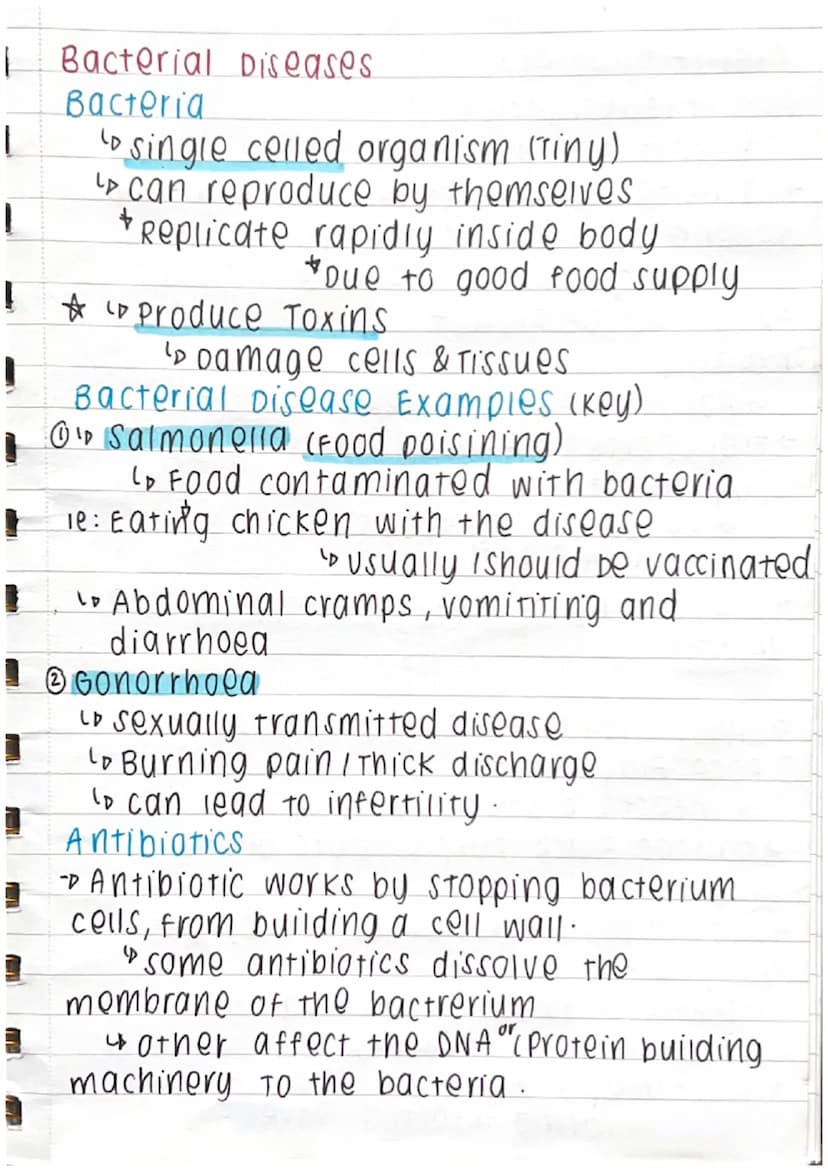 Bacterial Diseases
Bacteria
↳ single celled organism (Tiny)
↳ can reproduce by themselves
* Replicate rapidly inside body
* Due to good food supply
☆ ↳ Produce Toxins
↳ Damage cells & Tissues
Bacterial Disease Examples (Key)
① ↳ Salmonella (Food poisining)
↳ Food contaminated with bacteria
ie: Eating chicken with the disease
↳ usually / should be vaccinated
↳ Abdominal cramps, vomitting and
diarrhoea
② Gonorrhoea
↳ sexually transmitted disease
↳ Burning pain / Thick discharge
↳ can lead to infertility.
Antibiotics
→ Antibiotic works by stopping bacterium
cells, from building a cell wall.
↳ some antibiotics dissolve the
membrane of the bactrerium
↳ other affect the DNA or (Protein building
machinery to the bacteria.